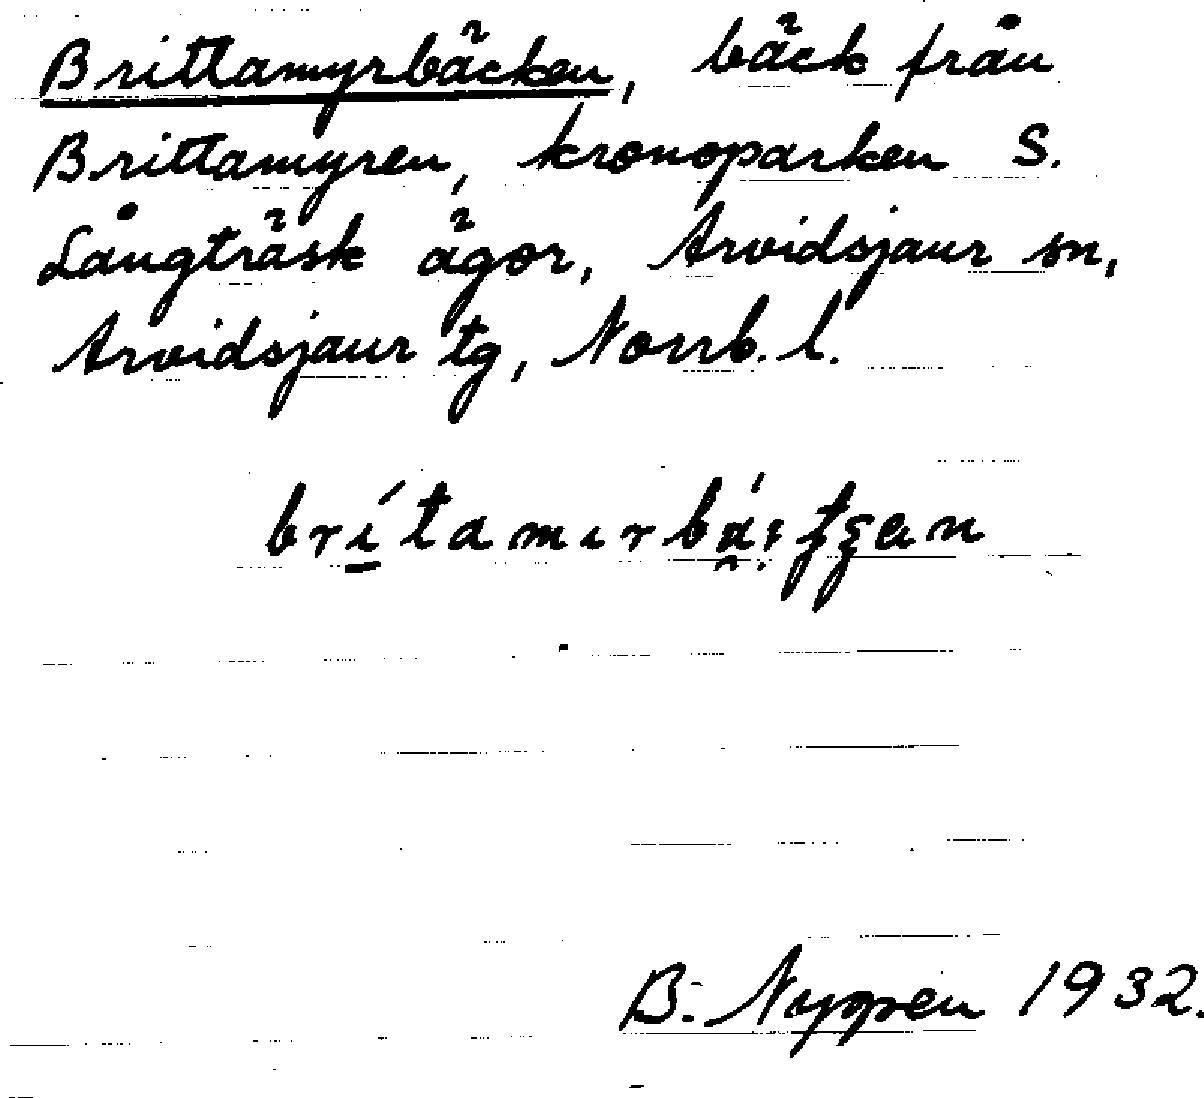 Brittamyrbäcken, bäck från
Brittamyren, kronoparken S.
Långträsk ägor, Arvidsjaur sn,
Arvidsjaur tg, Norrb. l.
B. Nyppen 1932.